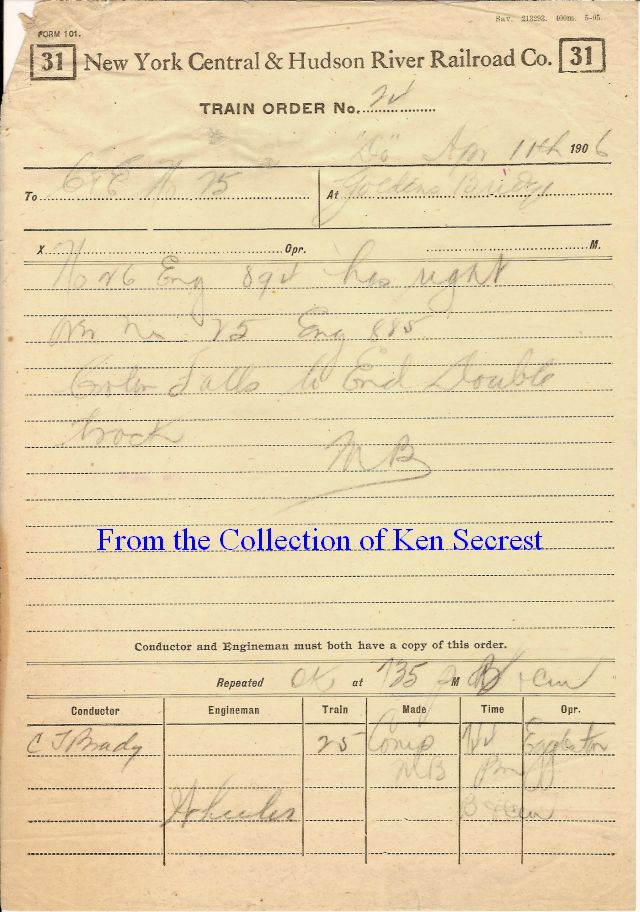 Sav. 213293. 400m. 5-05.
FORM 101.
31 New York Central & Hudson River Railroad Co. 31
TRAIN ORDER No.
Apr 11th 1906
To C&E No 25 At Goldens Bridge
X Opr. M.
No 26 Eng has right
No 25 Eng 885
Croton Falls to End Double
track
MB
From the Collection of Ken Secrest
Conductor and Engineman must both have a copy of this order.
Repeated OK at 135 M
Conductor Engineman Train Made Time Opr.
C J Brady 25 Comp
MB Pm
Wheeler